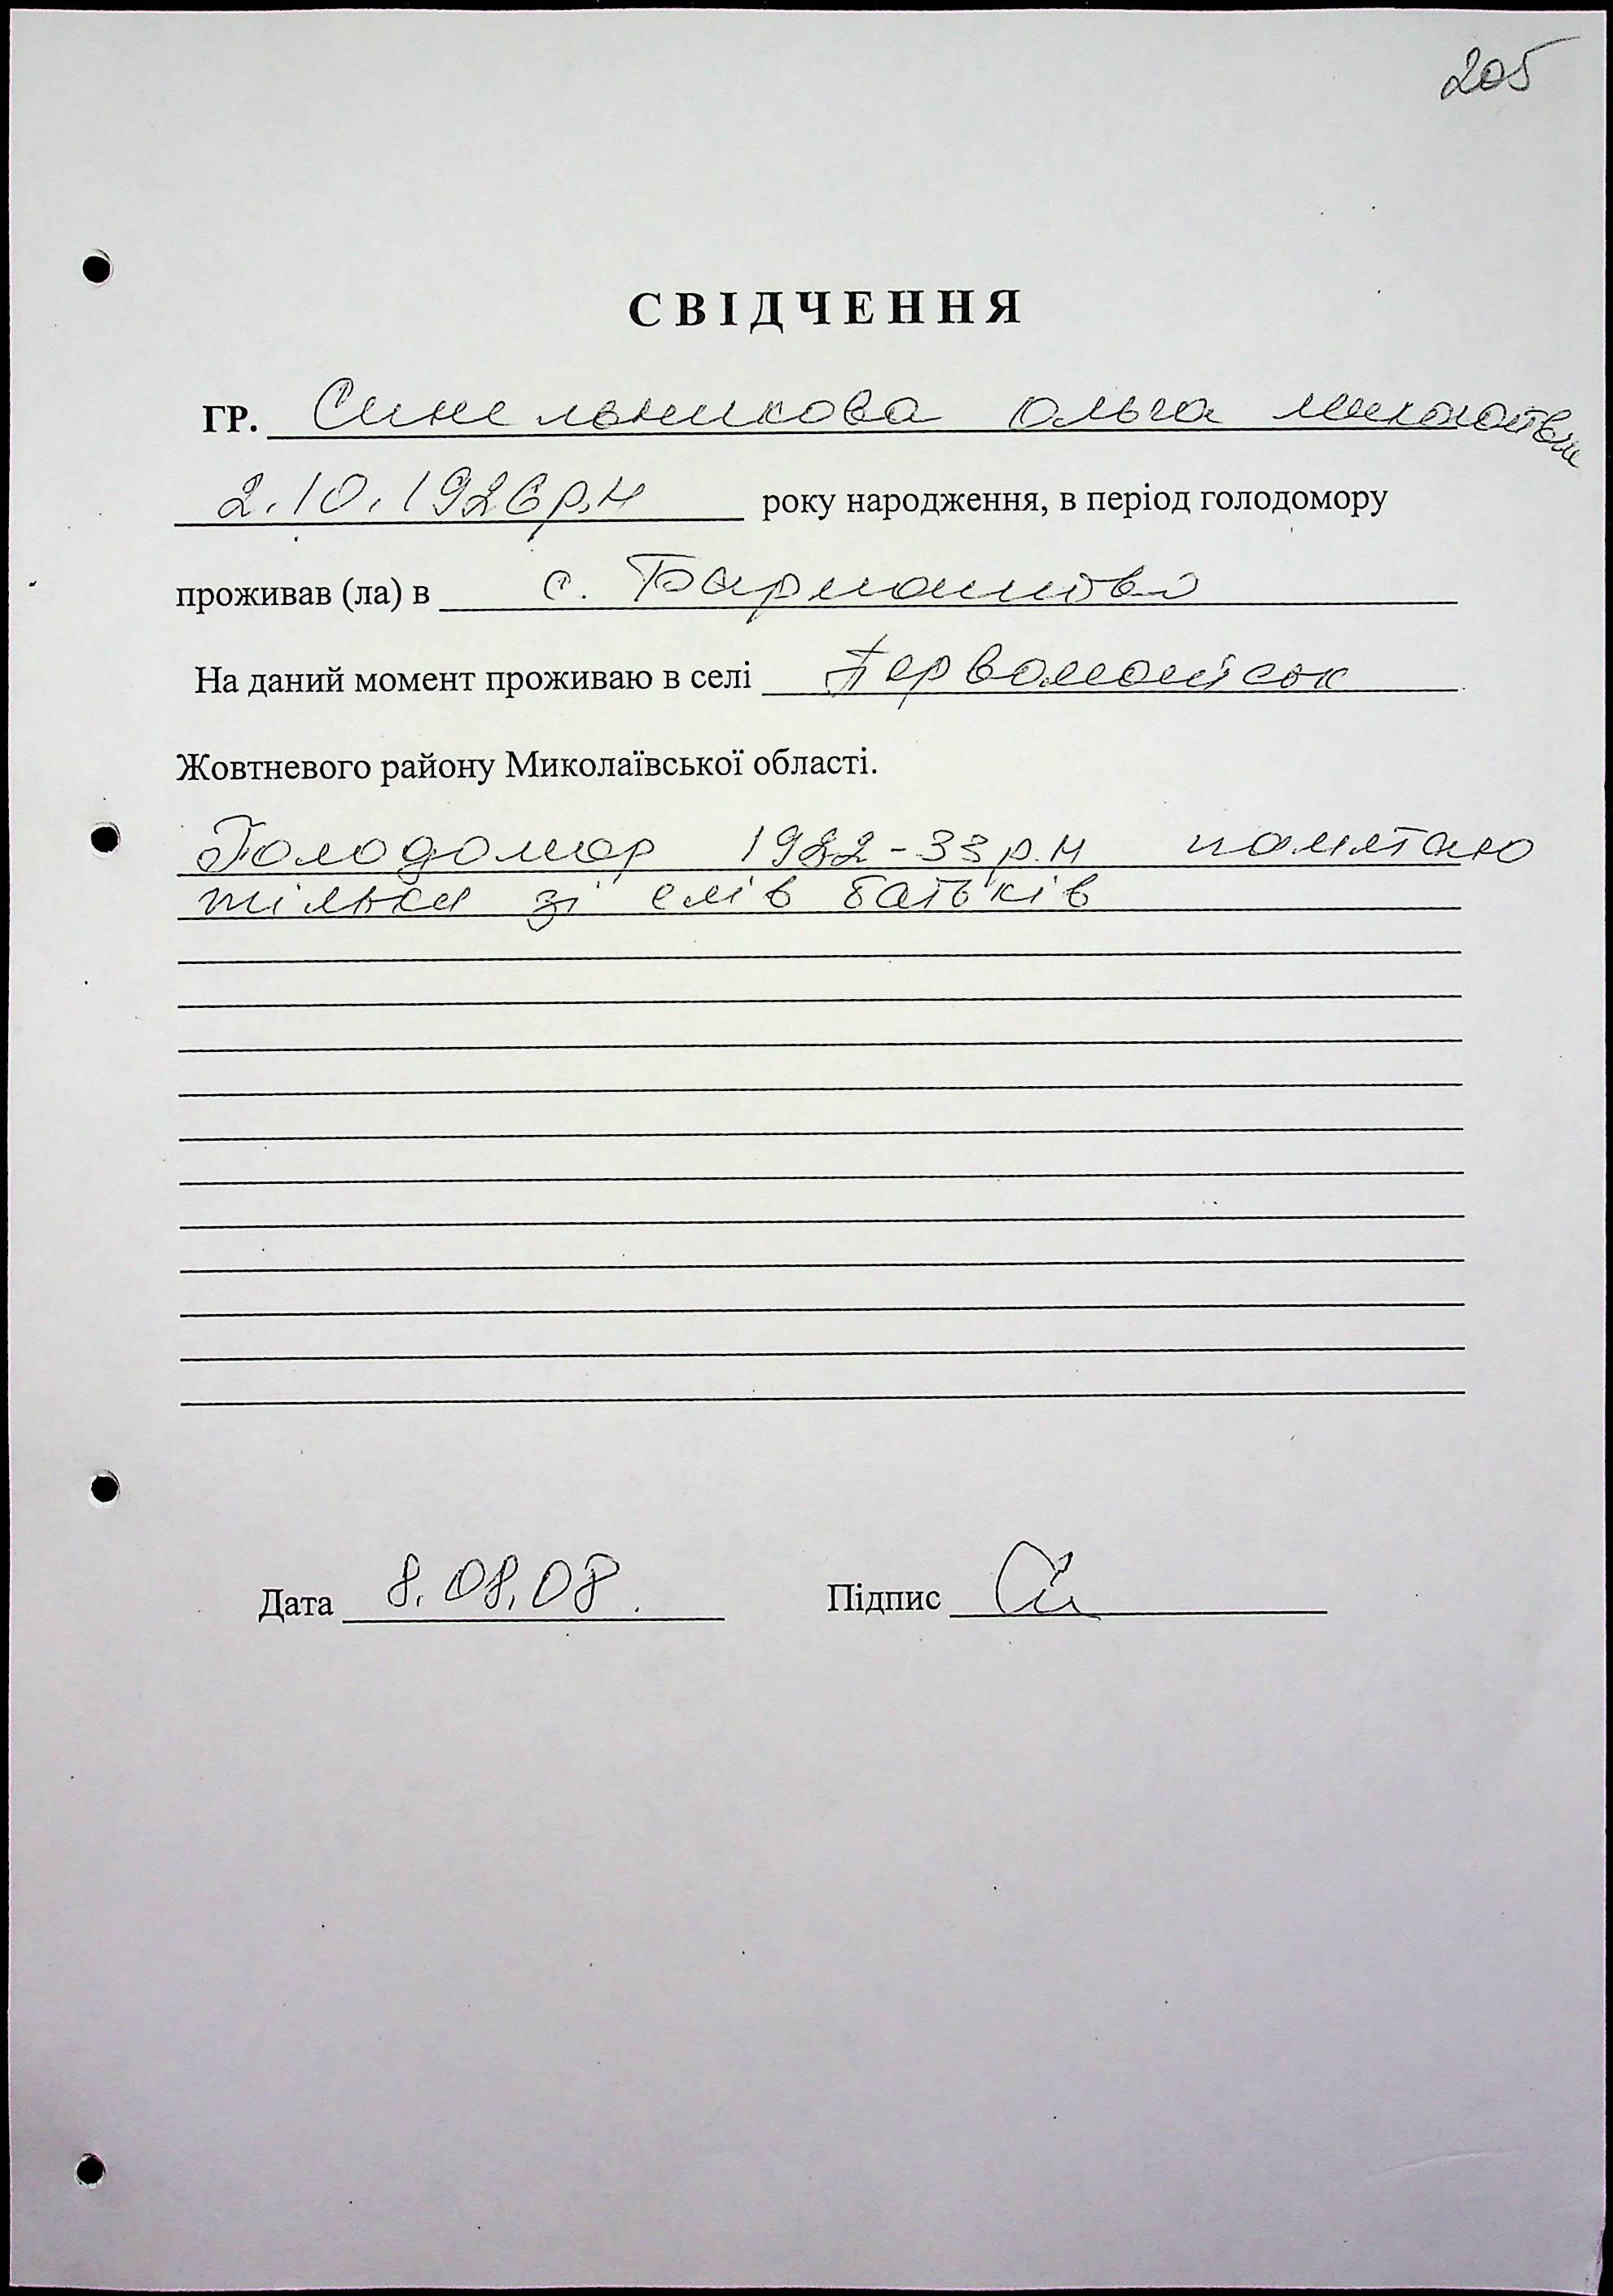 205
СВІДЧЕННЯ
ГР. Синельникова Ольга Миколаївна
2.10.1926 р.н року народження, в період голодомору
проживав (ла) в с. Бармашово
На даний момент проживаю в селі Первомайськ
Жовтневого району Миколаївської області.
Голодомор 1932-33 р.н памятаю
тільки зі слів батьків
Дата 8.08.08. Підпис